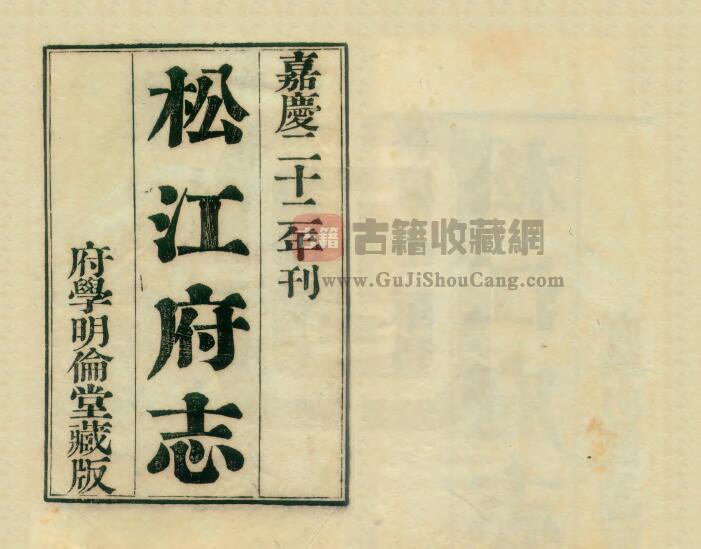 嘉慶二十二年刊
松江府志
府學明倫堂藏版
古籍
古籍收藏網
www.GuJiShouCang.com